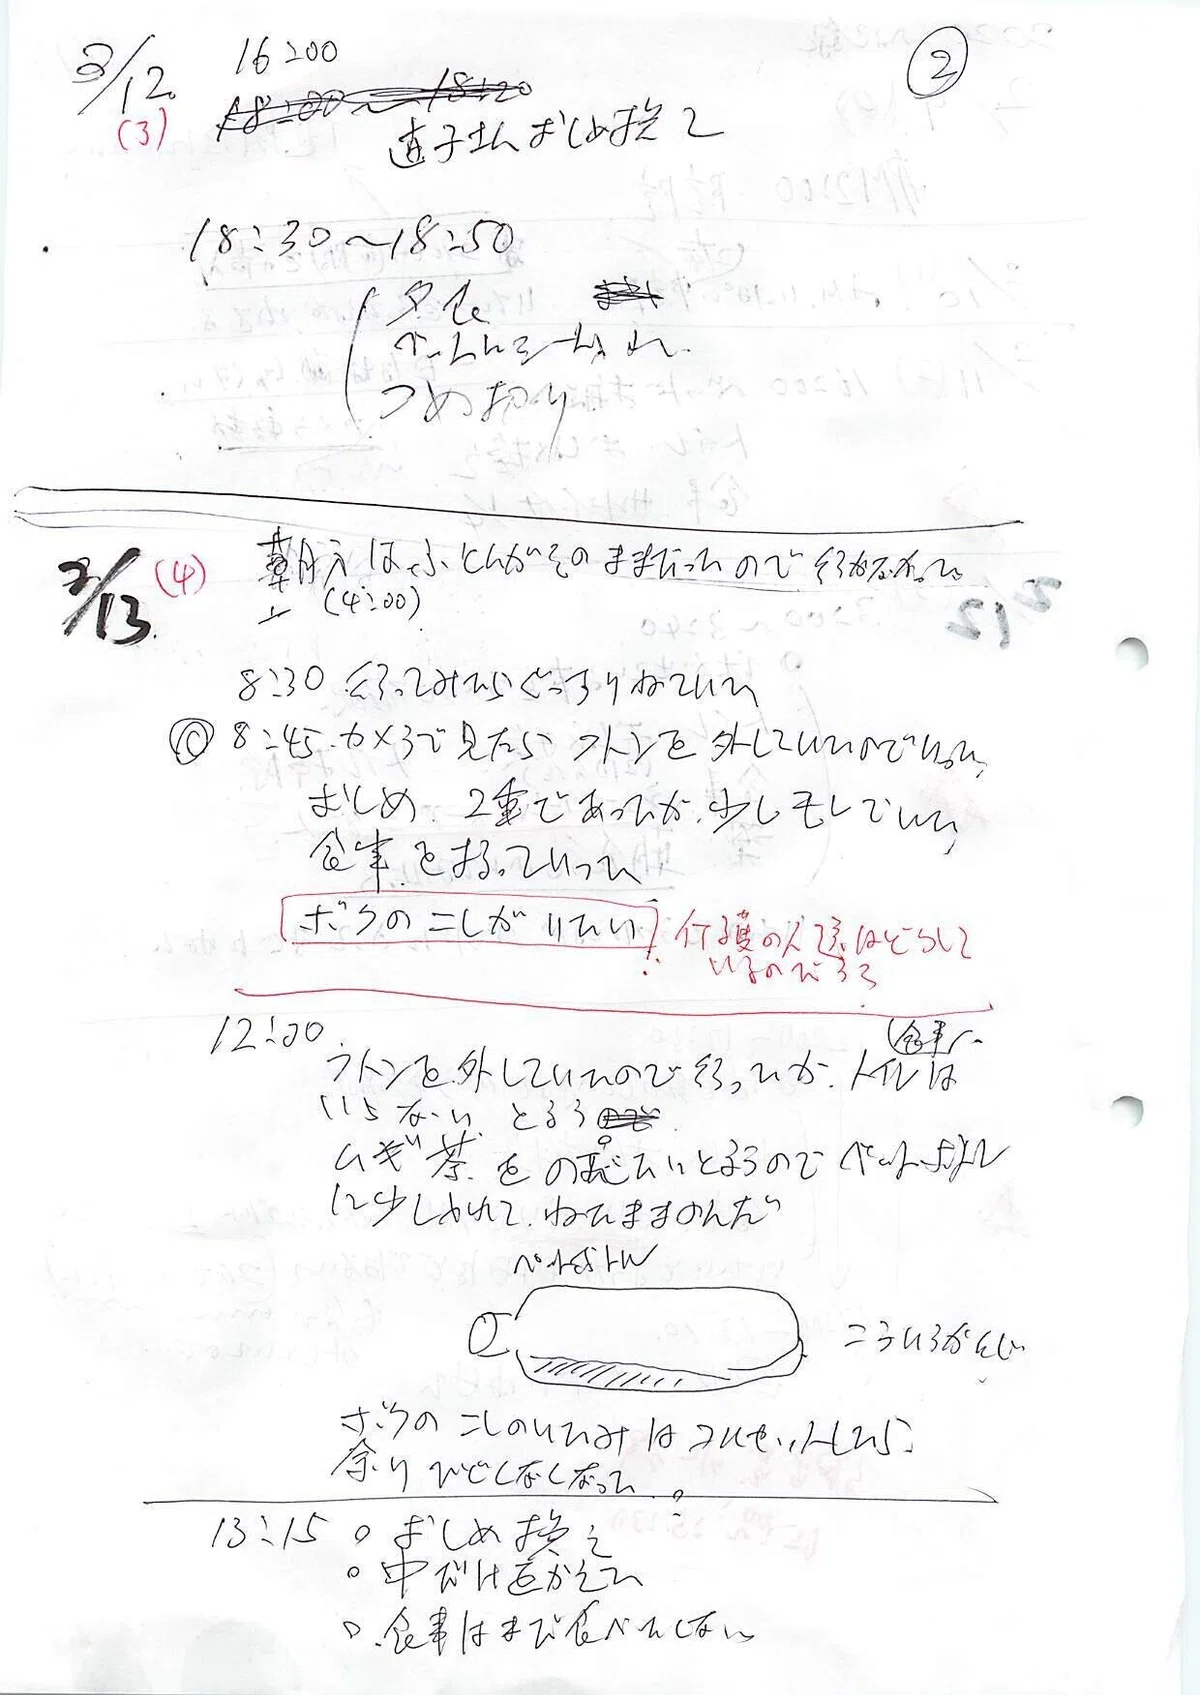 ②
2/12 16:00
(3) 18:00〜18:20
直子さんおしめ換え
18:30〜18:50
夕食
つめきり
2/13 (4) 朝方はふとんがそのままだったので行かなかった
(4:00)
8:30 行ってみたらぐっすりねていた
◎ 8:45 カメラで見たら フトンを外していたので
おしめ 2重であったが、少しモレていた
食事をもっていった
ボクのコシがいたい 介護の人達はどうして
いるのだろう
12:00 食事
フトンを外していたので行ったが、トイレは
いらない とゆう
ムギ茶をのみたいとゆうのでペットボトル
に少し入れて、ねたままのんだ
ペットボトル
こういうかんじ
ボクのコシのいたみはコルセットしたら
余りひどくなくなった。
13:15 ○ おしめ換え
○ 中だけ直かえた
○ 食事はまだ食べてない